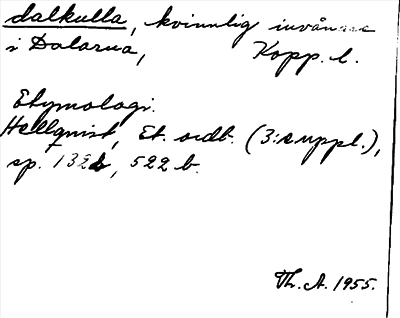 dalkulla, kvinnlig invånare
i Dalarna, Kopp. l.
Etymologi.
Hellquist, Et. ordb. (3:e uppl.),
sp. 132 b, 522 b.
Th. A. 1955.